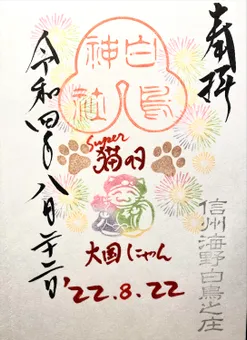 奉拝
白鳥
神人
社
Super
猫の日
大国にゃん
'22.8.22
信州海野白鳥之庄
令和四年八月二十二日